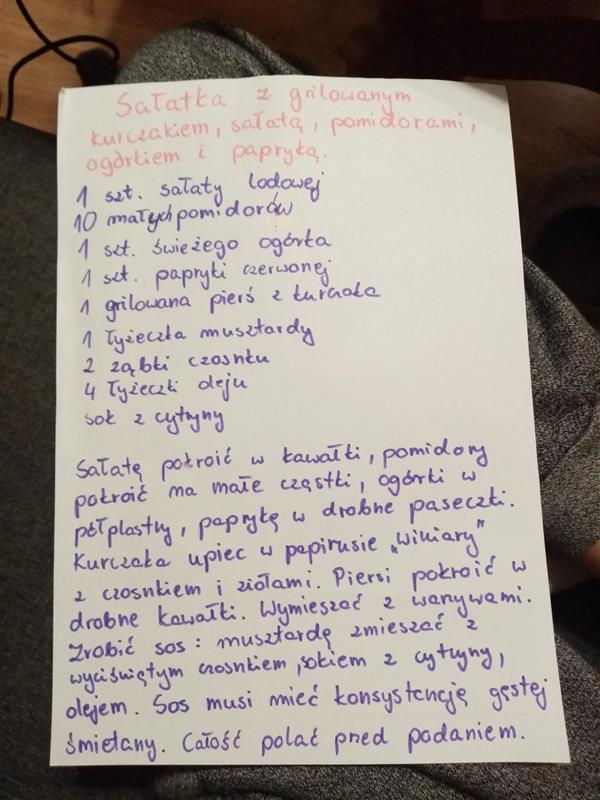 Sałatka z grilowanym
kurczakiem, sałatą, pomidorami,
ogórkiem i papryką.
1 szt. sałaty lodowej
10 małych pomidorów
1 szt. świeżego ogórka
1 szt. papryki czerwonej
1 grilowana pierś z kurczaka
1 łyżeczka musztardy
2 ząbki czosnku
4 łyżeczki oleju
sok z cytryny
Sałatę pokroić w kawałki, pomidory
pokroić na małe cząstki, ogórki w
półplastry, paprykę w drobne paseczki.
Kurczaka upiec w papirusie „Winiary"
z czosnkiem i ziołami. Piersi pokroić w
drobne kawałki. Wymieszać z warzywami.
Zrobić sos: musztardę zmieszać z
wyciśniętym czosnkiem, sokiem z cytryny,
olejem. Sos musi mieć konsystencję gęstej
śmietany. Całość polać przed podaniem.